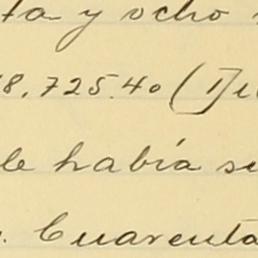 ta y ocho
8,725.40 (1)
le había se
. Cuarenta